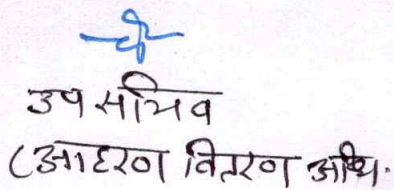 उप सचिव
(आहरण वितरण अधि.